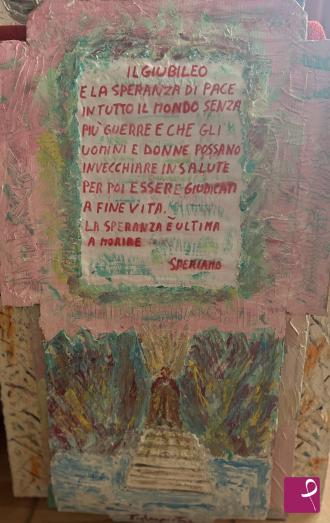 IL GIUBILEO
E LA SPERANZA DI PACE
IN TUTTO IL MONDO SENZA
PIU' GUERRE E CHE GLI
UOMINI E DONNE POSSANO
INVECCHIARE IN SALUTE
PER POI ESSERE GIUDICATI
A FINE VITA.
LA SPERANZA È ULTIMA
A MORIRE
SPERIAMO